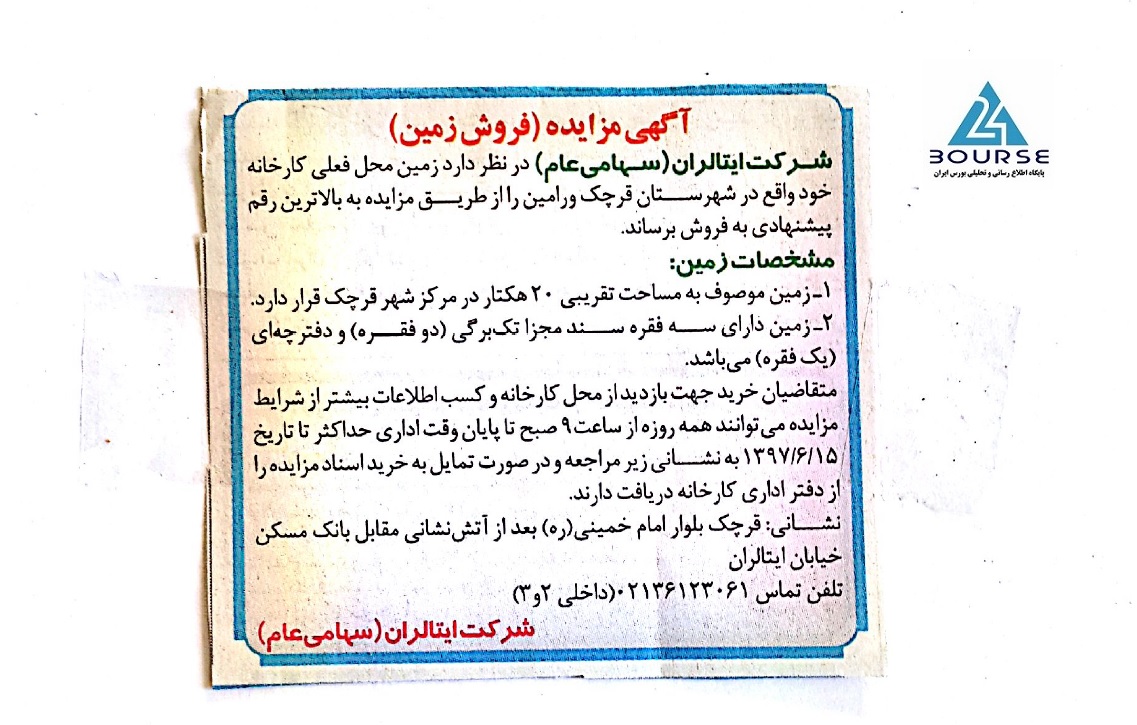 آگهی مزایده (فروش زمین)
شرکت ایتالران (سهامی عام) در نظر دارد زمین محل فعلی کارخانه
خود واقع در شهرستان قرچک ورامین را از طریق مزایده به بالاترین رقم
پیشنهادی به فروش برساند.
مشخصات زمین:
۱ـ زمین موصوف به مساحت تقریبی ۲۰ هکتار در مرکز شهر قرچک قرار دارد.
۲ـ زمین دارای سه فقره سند مجزا تک‌برگی (دو فقره) و دفترچه‌ای
(یک فقره) می‌باشد.
متقاضیان خرید جهت بازدید از محل کارخانه و کسب اطلاعات بیشتر از شرایط
مزایده می‌توانند همه روزه از ساعت ۹ صبح تا پایان وقت اداری حداکثر تا تاریخ
۱۳۹۷/۶/۱۵ به نشانی زیر مراجعه و در صورت تمایل به خرید اسناد مزایده را
از دفتر اداری کارخانه دریافت دارند.
نشانی: قرچک بلوار امام خمینی(ره) بعد از آتش‌نشانی مقابل بانک مسکن
خیابان ایتالران
تلفن تماس ۰۲۱۳۶۱۲۳۰۶۱(داخلی ۲و۳)
شرکت ایتالران (سهامی عام)
24
BOURSE
پایگاه اطلاع رسانی و تحلیلی بورس ایران